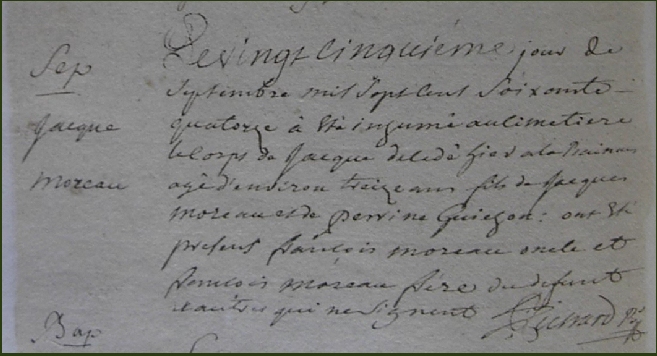 Sep
Jacque
moreau
Le vingt cinquiéme jour de
Septembre mil Sept Cent Soixante-
quatorze à été inhumé au Cimetiere
le Corps de Jacque deledé hier a la
agé d'environ treize ans fils de Jacques
moreau et de perrine : ont été
presens francois moreau oncle et
francois moreau frere du defunt
et autres qui ne Signent Richard
Bap